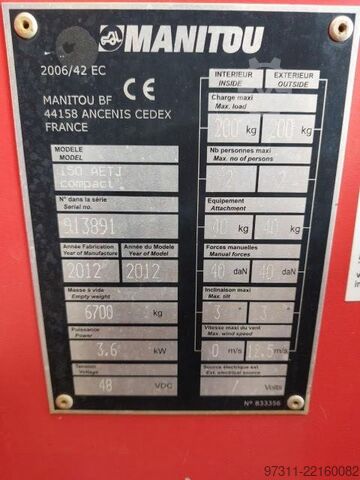 MANITOU
2006/42 EC
CE
MANITOU BF
44158 ANCENIS CEDEX
FRANCE
MODELE
MODEL
150 AETJ
compact
N° dans la série
Serial no.
913891
Année Fabrication
Year of Manufacture
Année du Modele
Year of Model
2012
2012
Masse à vide
Empty weight
6700 kg
Puissance
Power
3,6 kW
Tension
Voltage
48 VDC
INTERIEUR
INSIDE
EXTERIEUR
OUTSIDE
Charge maxi
Max. load
200 kg 200 kg
Nb personnes maxi
Max. no of persons
2 2
Equipement
Attachment
40 kg 40 kg
Forces manuelles
Manual forces
40 daN 40 daN
Inclinaison maxi
Max. tilt
3 ° 3 °
Vitesse maxi du vent
Max. wind speed
0 m/s 12.5 m/s
Source électrique ext
Ext. electrical source
Volts
N° 833356
97311-22160082